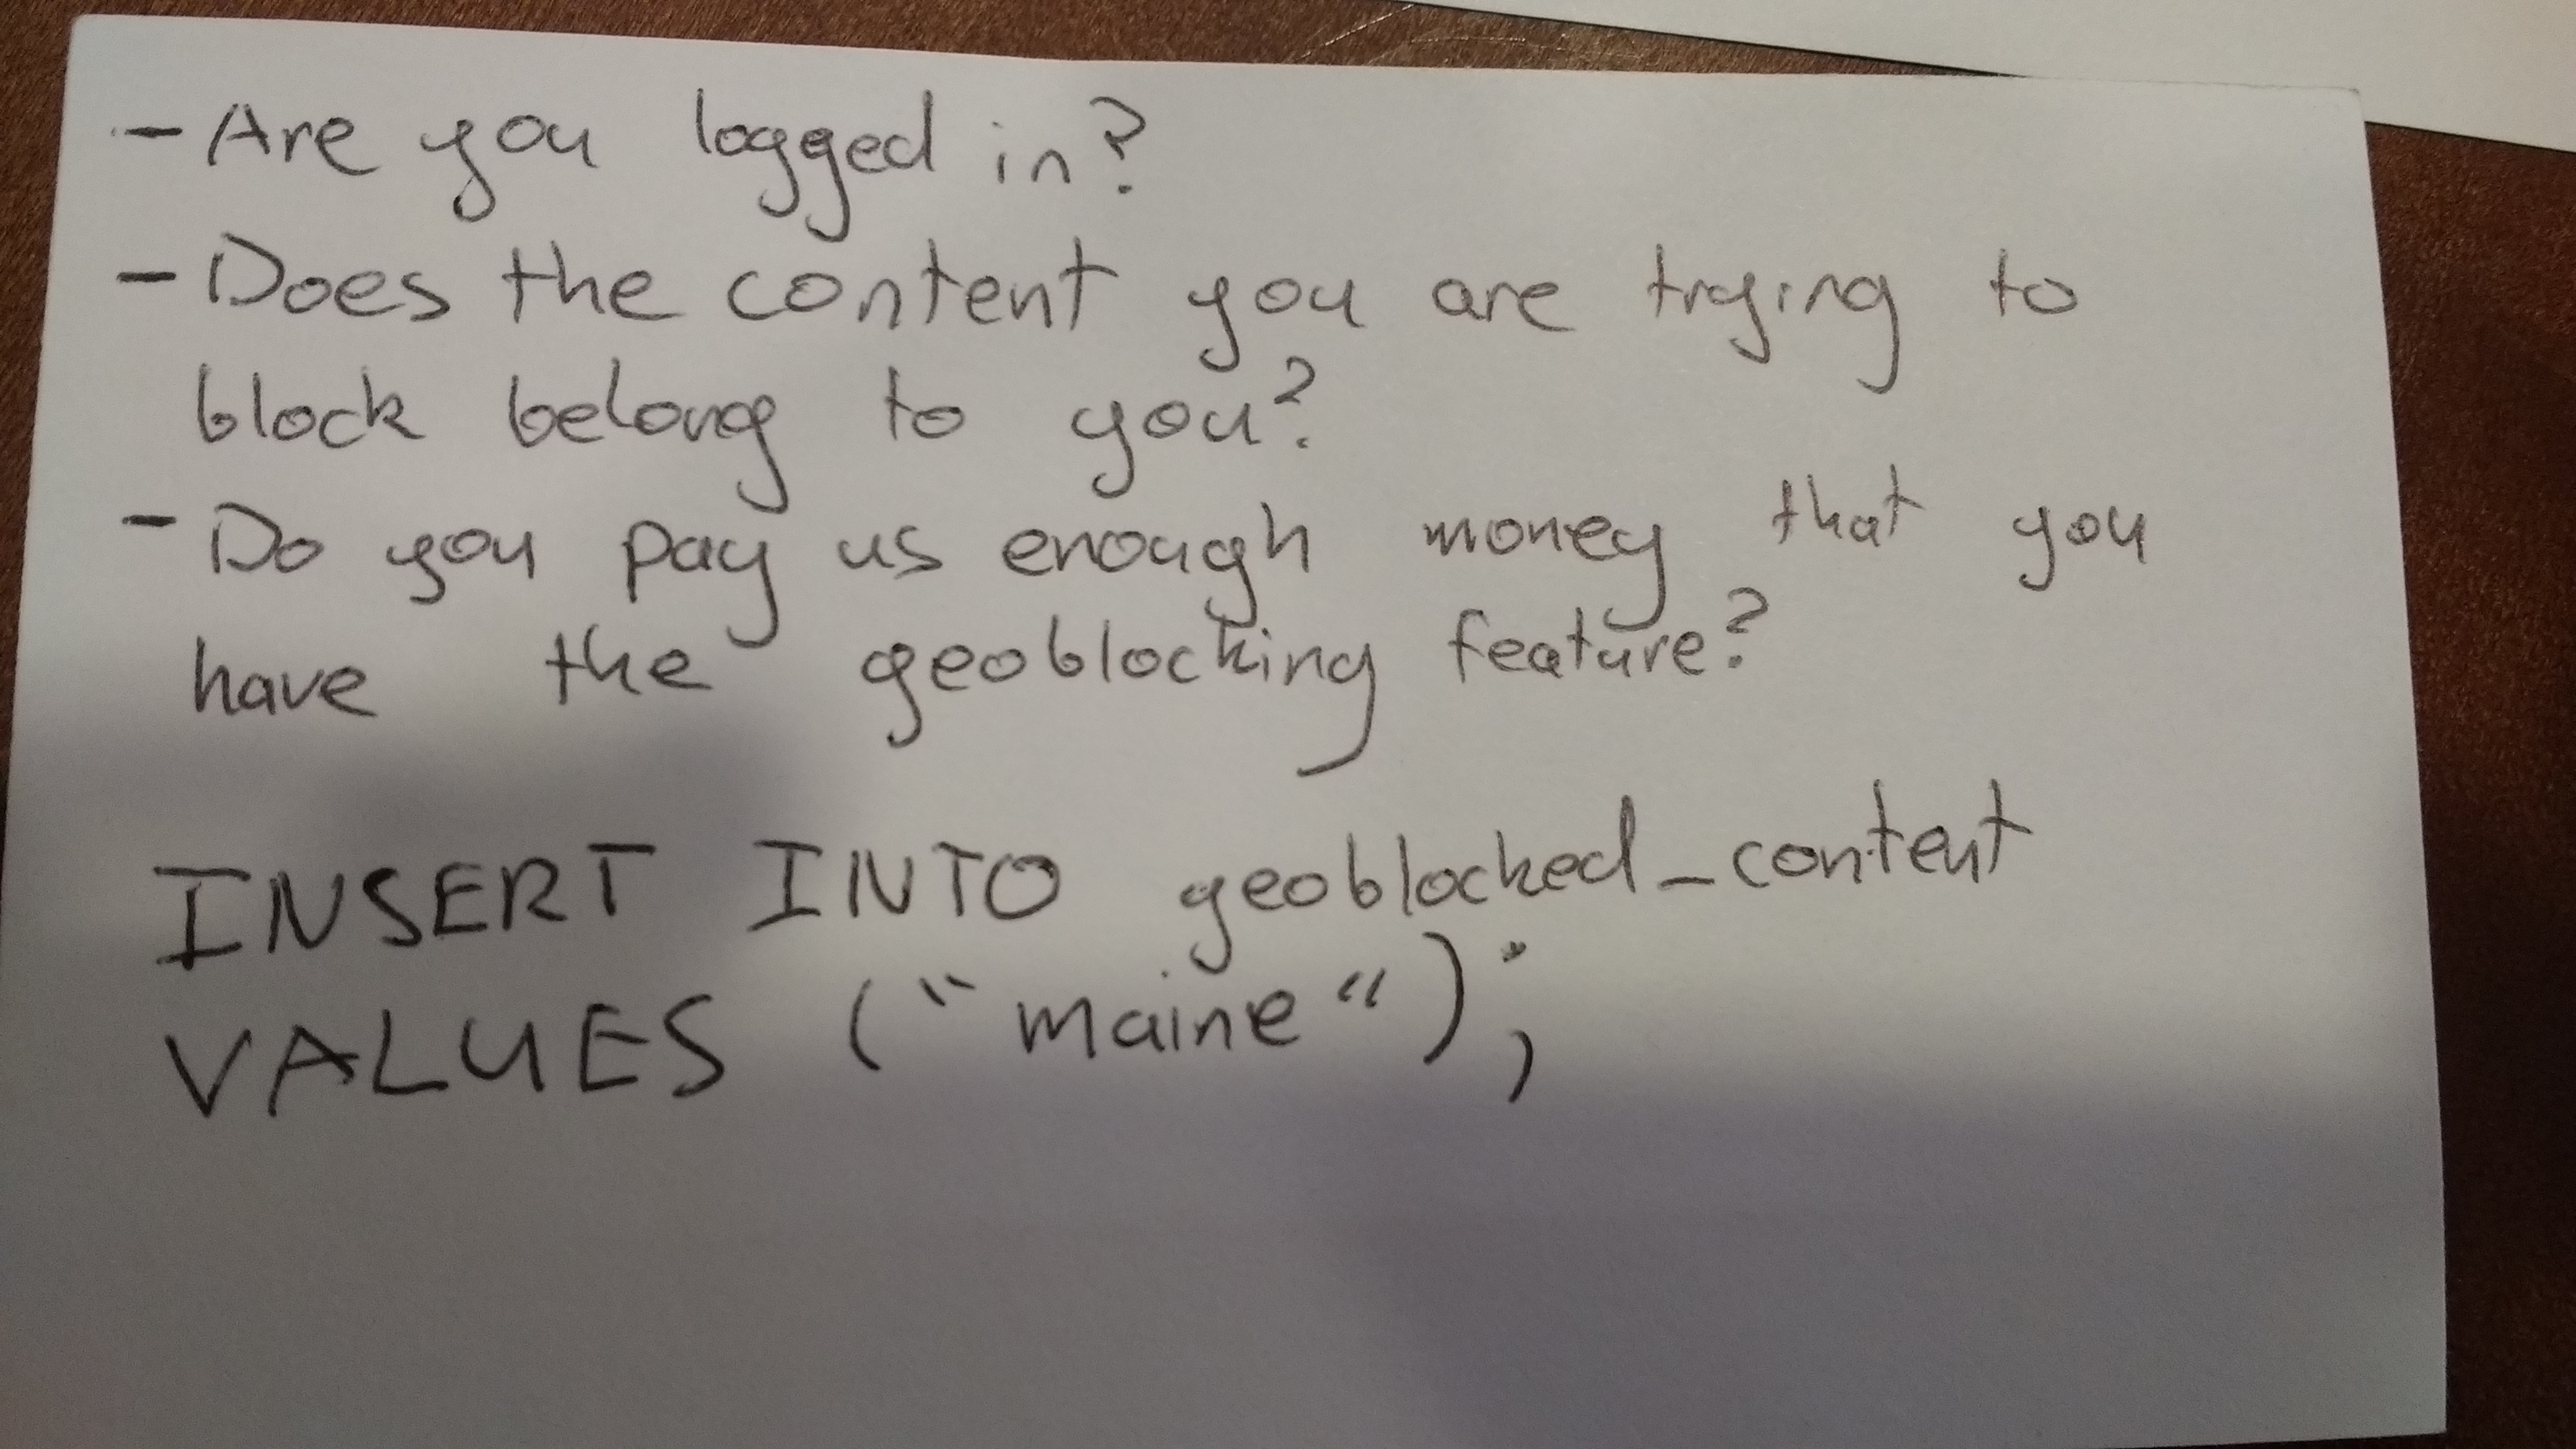 - Are you logged in?
- Does the content you are trying to
block belong to you?
- Do you pay us enough money that you
have the geoblocking feature?
INSERT INTO geoblocked_content
VALUES ("maine");